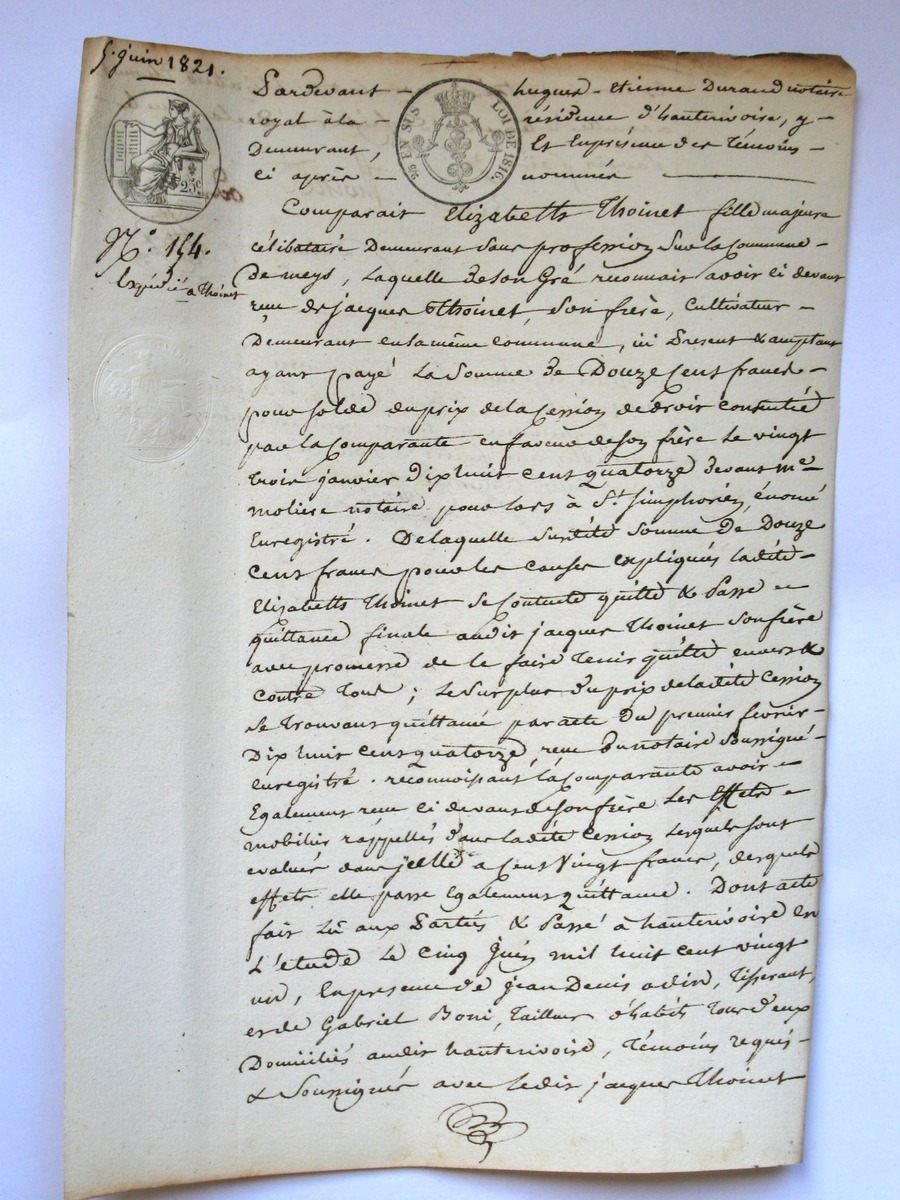 5. juin 1821.
25c
EN SUS LOI DE 1816.
N.o 154.
Expédié a Thoinet
Pardevant hugues-Etienne Durand notaire
royal à la résidence d'hauterivoire, y
Demeurant, Et En présence des Témoins
ci après nommés
Comparait Elizabeth Thoinet fille majeure
célibataire Demeurant sans profession sur la commune
De meys, laquelle de son Gré reconnait avoir ci devant
reçu de jacques Thoinet, son frère, cultivateur
Demeurant en la même commune, ici Présent & acceptant
ayant payé La Somme De Douze Cent francs
pour solde du prix de la Cession de droit consentié
par la Comparante en faveur de son frère Le vingt
trois janvier dix huit cent quatorze devant me
moliere notaire pour lors à St. Simphorien,
Enregistré. De laquelle susdite somme De Douze
Cent francs pour les causes expliqués ladite
Elizabeth Thoinet se contente quitte & Passe
quittance finale audit jacques Thoinet son frère
avec promesse de le faire tenir quitte envers &
contre Tous ; Le surplus du prix de ladite Cession
se trouvant quittancé par acte du premier fevrier
Dix huit cent quatorze, reçu du notaire soussigné
enregistré. reconnoissant la comparante avoir
Egalement reçu ci devant de son frère Les Effets
mobilier rappellés dans ladite Cession lesquels sont
evalués dans jcelle a Cent Vingt francs, desquels
effets elle passe Egalement quittance. Dont acte
fait Lû aux Parties & Passé à hauterivoire en
L'étude Le Cinq Juin mil huit cent vingt
un, En présence de jean Denis adin, Tisserant,
et de Gabriel Boni, Tailleur d'habits Tous deux
Domiciliés audit hauterivoire, Témoins requis
& Soussignés avec ledit jacques Thoinet